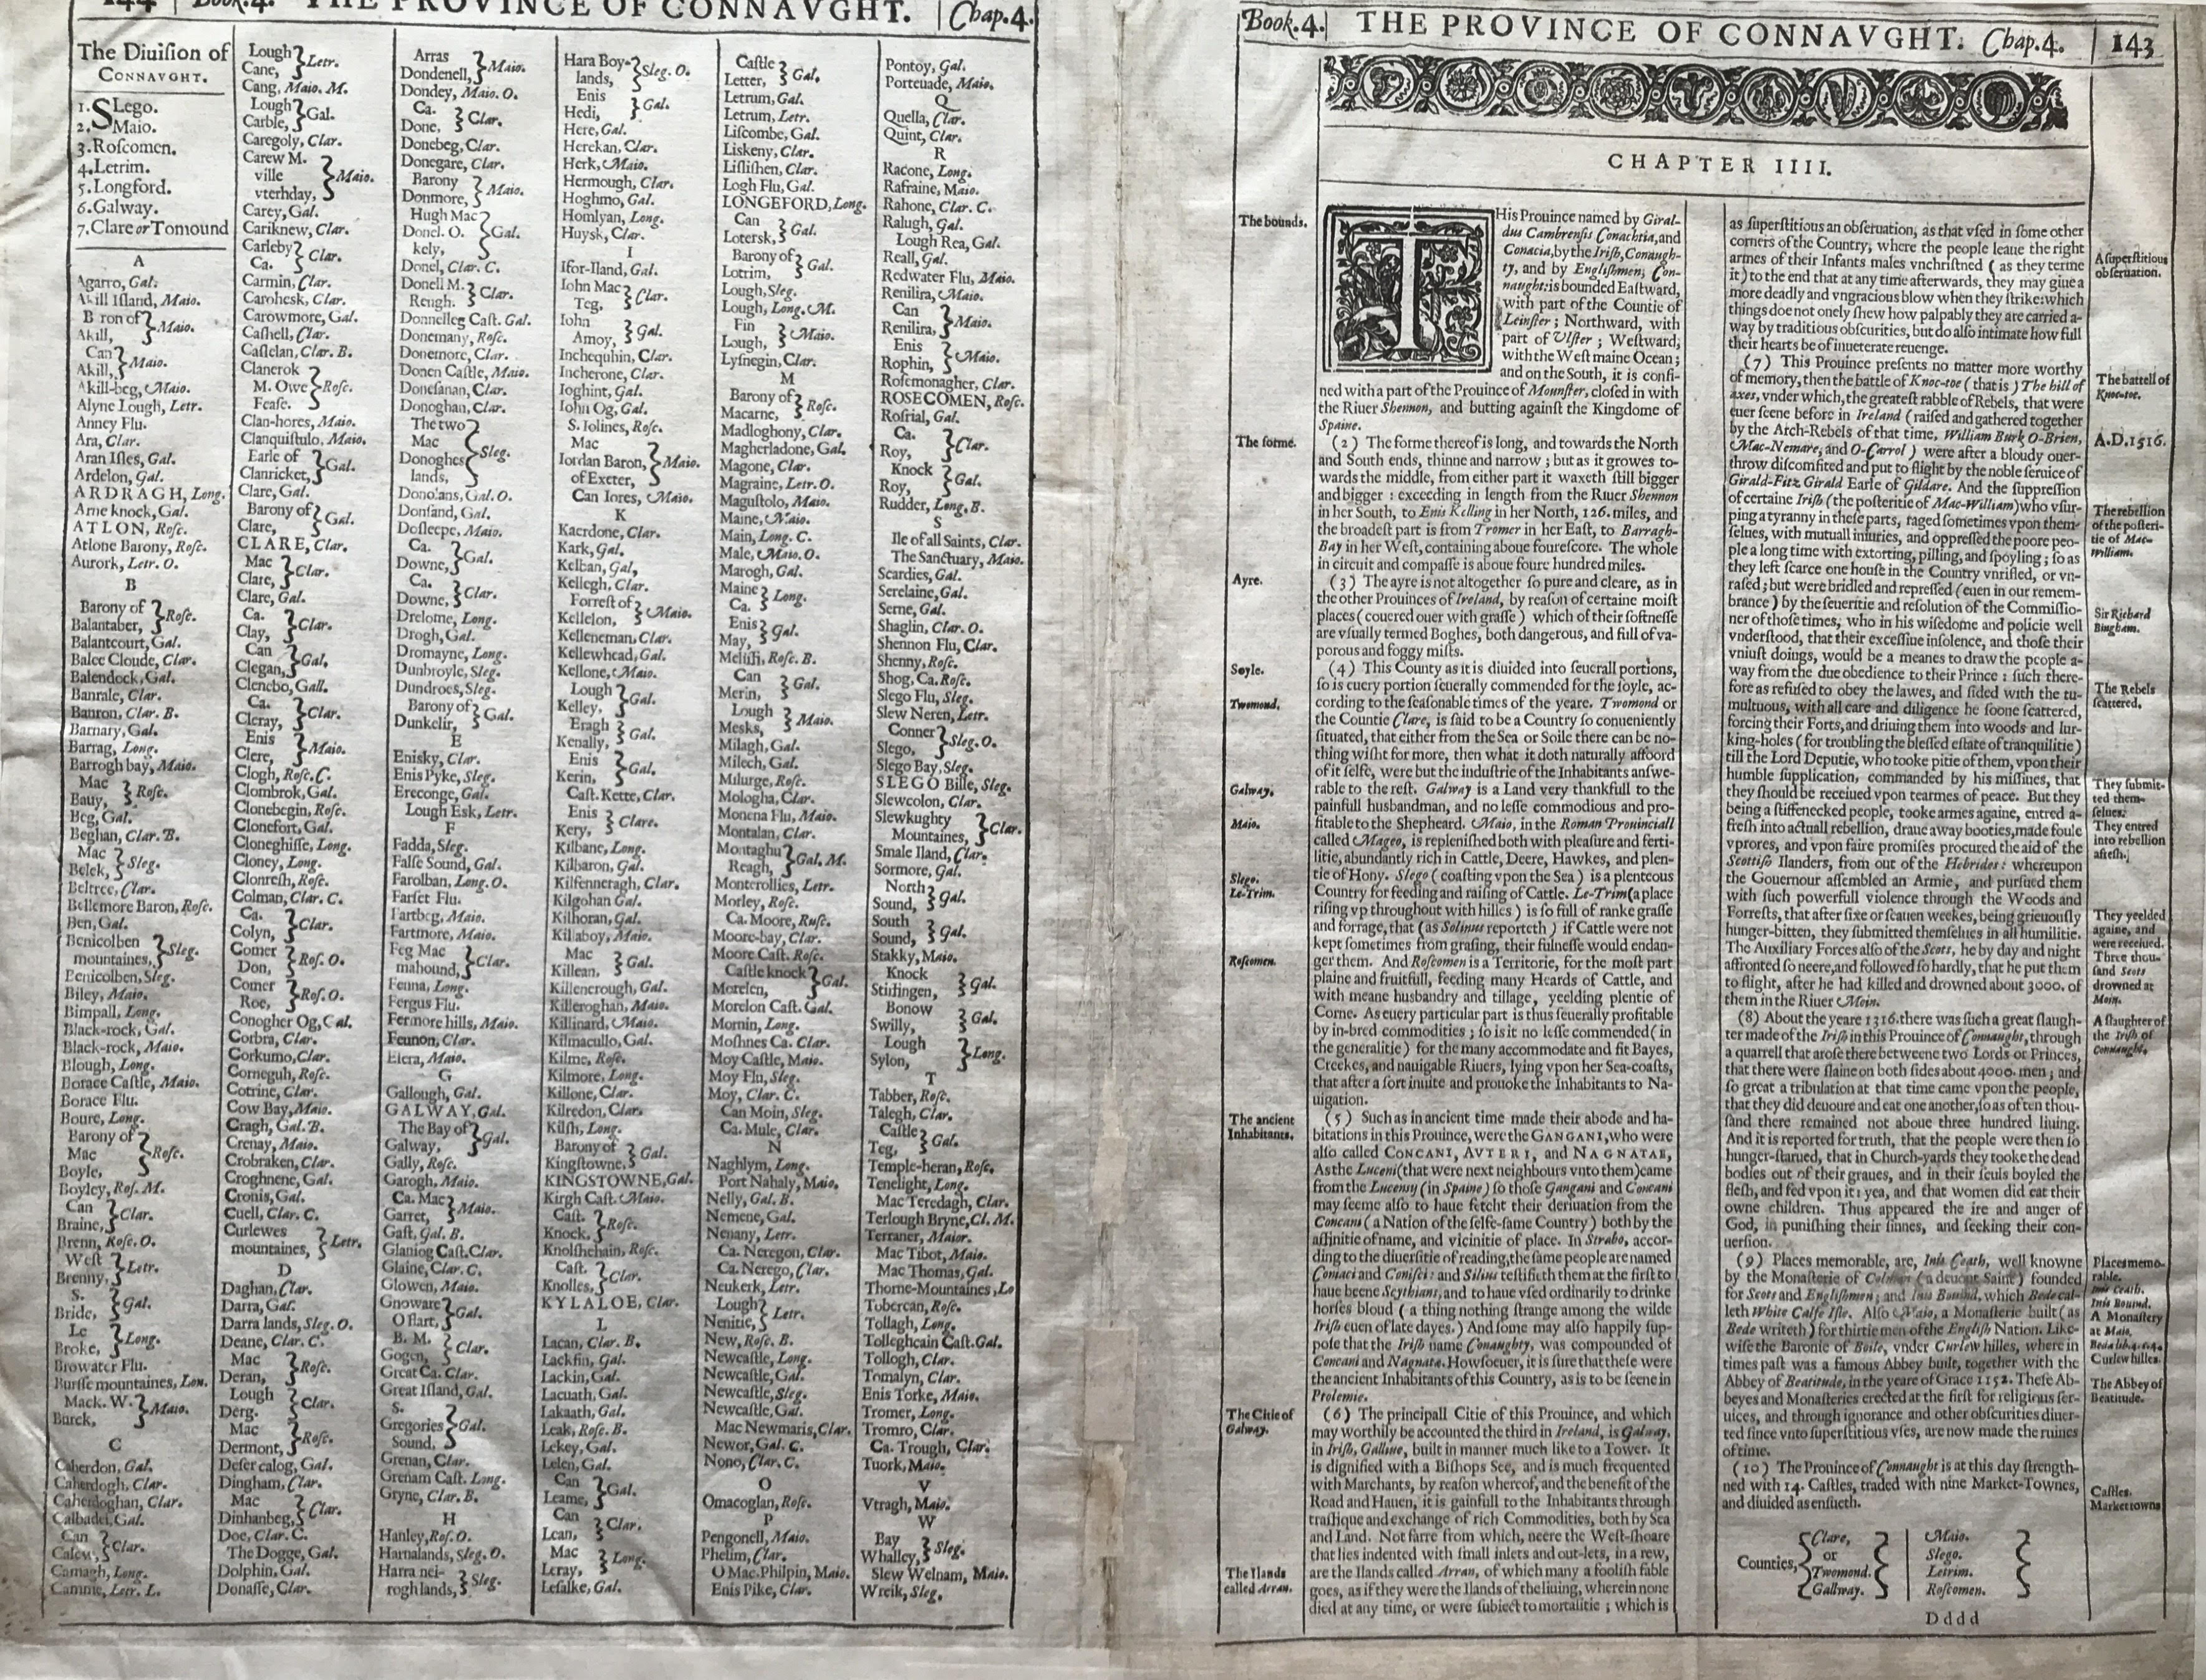 144 | Book.4. THE PROVINCE OF CONNAVGHT. | Chap.4.
The Diuiſion of
CONNAVGHT.
1. SLego.
2. Maio.
3. Roſcomen.
4. Letrim.
5. Longford.
6. Galway.
7. Clare or Tomound
A
Agarro, Gal.
Akill Iſland, Maio.
B ron of
Akill, Maio.
Can
Akill, Maio.
Akill-beg, Maio.
Alyne Lough, Letr.
Anney Flu.
Ara, Clar.
Aran Iſles, Gal.
Ardelon, Gal.
ARDRAGH, Long.
Arne knock, Gal.
ATLON, Roſc.
Atlone Barony, Roſc.
Aurork, Letr. O.
B
Barony of
Balantaber, Roſc.
Balantcourt, Gal.
Balee Cloude, Clar.
Balendock, Gal.
Banrale, Clar.
Banron, Clar. B.
Barnary, Gal.
Barrag, Long.
Barrogh bay, Maio.
Mac
Bauy, Roſc.
Beg, Gal.
Beghan, Clar. B.
Mac
Belek, Sleg.
Beltree, Clar.
Bellemore Baron, Roſc.
Ben, Gal.
Benicolben
mountaines, Sleg.
Benicolben, Sleg.
Biley, Maio.
Bimpall, Long.
Black-rock, Gal.
Black-rock, Maio.
Blough, Long.
Borace Caſtle, Maio.
Borace Flu.
Boure, Long.
Barony of
Mac
Boyle, Roſc.
Boyley, Roſ. M.
Can
Braine, Clar.
Brenn, Roſc. O.
Weſt
Brenny, Letr.
S.
Bride, Gal.
Le
Broke, Long.
Browater Flu.
Burſſe mountaines, Lon.
Mack. W.
Burck, Maio.
C
Caherdon, Gal.
Caherdogh, Clar.
Caherdoghan, Clar.
Calbadei, Gal.
Can
Calew, Clar.
Camagh, Long.
Camme, Letr. L.
Lough
Cane, Letr.
Cang, Maio. M.
Lough
Carble, Gal.
Caregoly, Clar.
Carew M.
ville
vterhday, Maio.
Carey, Gal.
Cariknew, Clar.
Carleby
Ca. Clar.
Carmin, Clar.
Carohesk, Clar.
Carowmore, Gal.
Caſhell, Clar.
Caſlelan, Clar. B.
Clanerok
M. Owe
Feaſe. Roſc.
Clan-hores, Maio.
Clanquiſtulo, Maio.
Earle of
Clanricket, Gal.
Clare, Gal.
Barony of
Clare, Gal.
CLARE, Clar.
Mac
Clare, Clar.
Clare, Gal.
Ca.
Clay, Clar.
Can
Clegan, Gal.
Clenebo, Gall.
Ca.
Cleray, Clar.
Enis
Clere, Maio.
Clogh, Roſc. C.
Clombrok, Gal.
Clonebegin, Roſc.
Clonefort, Gal.
Cloneghiſſe, Long.
Cloney, Long.
Clonreſh, Roſc.
Colman, Clar. C.
Ca.
Colyn, Clar.
Comer
Don, Roſ. O.
Comer
Roe, Roſ. O.
Conogher Og, Gal.
Corbra, Clar.
Corkumo, Clar.
Corneguh, Roſc.
Cotrine, Clar.
Cow Bay, Maio.
Cragh, Gal. B.
Crenay, Maio.
Crobraken, Clar.
Croghnene, Gal.
Cronis, Gal.
Cuell, Clar. C.
Curlewes
mountaines, Letr.
D
Daghan, Clar.
Darra, Gal.
Darra lands, Sleg. O.
Deane, Clar. C.
Mac
Deran, Roſc.
Lough
Derg. Clar.
Mac
Dermont, Roſc.
Deſer calog, Gal.
Dingham, Clar.
Mac
Dinhanbeg, Clar.
Doe, Clar. C.
The Dogge, Gal.
Dolphin, Gal.
Donaſſe, Clar.
Arras
Dondenell, Maio.
Dondey, Maio. O.
Ca.
Done, Clar.
Donebeg, Clar.
Donegare, Clar.
Barony
Donmore, Maio.
Hugh Mac
Donel. O.
kely, Gal.
Donel, Clar. C.
Donell M.
Reugh. Clar.
Donnelleg Caſt. Gal.
Donemany, Roſc.
Donemore, Clar.
Donen Caſtle, Maio.
Doneſanan, Clar.
Donoghan, Clar.
The two
Mac
Donoghes
lands, Sleg.
Donolans, Gal. O.
Donſand, Gal.
Doſleepe, Maio.
Ca.
Downe, Gal.
Ca.
Downe, Clar.
Drelome, Long.
Drogh, Gal.
Dromayne, Long.
Dunbroyle, Sleg.
Dundroes, Sleg.
Barony of
Dunkelir, Gal.
E
Enisky, Clar.
Enis Pyke, Sleg.
Ereconge, Gal.
Lough Esk, Letr.
F
Fadda, Sleg.
Falſe Sound, Gal.
Farolban, Long. O.
Farſet Flu.
Fartbeg, Maio.
Fartmore, Maio.
Feg Mac
mahound, Clar.
Fenna, Long.
Fergus Flu.
Fermore hills, Maio.
Feunon, Clar.
Fiera, Maio.
G
Gallough, Gal.
GALWAY, Gal.
The Bay of
Galway, Gal.
Gally, Roſc.
Garogh, Maio.
Ca. Mac
Garret, Maio.
Gaſt, Gal. B.
Glaniog Caſt. Clar.
Glaine, Clar. C.
Glowen, Maio.
Gnoware
Oflart, Gal.
B. M.
Gogen, Clar.
Great Ca. Clar.
Great Iſland, Gal.
S.
Gregories
Sound, Gal.
Grenan, Clar.
Grenam Caſt. Long.
Gryne, Clar. B.
H
Hanley, Roſ. O.
Harnalands, Sleg. O.
Harra nei-
rogh lands, Sleg.
Hara Boy-
lands, Sleg. O.
Enis
Hedi, Gal.
Here, Gal.
Herekan, Clar.
Herk, Maio.
Hermough, Clar.
Hoghmo, Gal.
Homlyan, Long.
Huysk, Clar.
I
Ifor-Iland, Gal.
Iohn Mac
Teg, Clar.
Iohn
Amoy, Gal.
Inchequhin, Clar.
Incherone, Clar.
Ioghint, Gal.
Iohn Og, Gal.
S. Iolines, Roſc.
Mac
Iordan Baron,
of Exeter, Maio.
Can Iores, Maio.
K
Kaerdone, Clar.
Kark, Gal.
Kelban, Gal,
Kellegh, Clar.
Forreſt of
Kellelon, Maio.
Kelleneman, Clar.
Kellewhead, Gal.
Kellone, Maio.
Lough
Kelley, Gal.
Eragh
Kenally, Gal.
Enis
Kerin, Gal.
Caſt. Kette, Clar.
Enis
Kery, Clare.
Kilbane, Long.
Kilbaron, Gal.
Kilfenneragh, Clar.
Kilgohan Gal.
Kilhoran, Gal.
Killaboy, Maio.
Mac
Killean, Gal.
Killencrough, Gal.
Killeroghan, Maio.
Killinard, Maio.
Kilmacullo, Gal.
Kilme, Roſc.
Kilmore, Long.
Killone, Clar.
Kilredon, Clar.
Kilſh, Long.
Barony of
Kingſtowne, Gal.
KINGSTOWNE, Gal.
Kirgh Caſt. Maio.
Caſt.
Knock, Roſc.
Knolſhchain, Roſc.
Caſt.
Knolles, Clar.
KYLALOE, Clar.
L
Lacan, Clar. B.
Lackfin, Gal.
Lackin, Gal.
Lacuath, Gal.
Lakaath, Gal.
Leak, Roſc. B.
Lekey, Gal.
Lelen, Gal.
Can
Leame, Gal.
Can
Lean, Clar.
Mac
Leray, Long.
Leſalke, Gal.
Caſtle
Letter, Gal.
Letrum, Gal.
Letrum, Letr.
Liſcombe, Gal.
Liskeny, Clar.
Liſliſhen, Clar.
Logh Flu, Gal.
LONGEFORD, Long.
Can
Lotersk, Gal.
Barony of
Lotrim, Gal.
Lough, Sleg.
Lough, Long. M.
Fin
Lough, Maio.
Lyſnegin, Clar.
M
Barony of
Macarne, Roſc.
Madloghony, Clar.
Magherladone, Gal.
Magone, Clar.
Magraine, Letr. O.
Maguſtolo, Maio.
Maine, Maio.
Main, Long. C.
Male, Maio. O.
Marogh, Gal.
Maine
Ca. Long.
Enis
May, Gal.
Meliſh, Roſc. B.
Can
Merin, Gal.
Lough
Mesks, Maio.
Milagh, Gal.
Milech, Gal.
Milurge, Roſc.
Mologha, Clar.
Monena Flu, Maio.
Montalan, Clar.
Montaghu
Reagh, Gal. M.
Monterollies, Letr.
Morley, Roſc.
Ca. Moore, Ruſc.
Moore-bay, Clar.
Moore Caſt. Roſc.
Caſtle knock
Morelen, Gal.
Morelon Caſt. Gal.
Mornin, Long.
Moſhnes Ca. Clar.
Moy Caſtle, Maio.
Moy Flu, Sleg.
Moy, Clar. C.
Can Moin, Sleg.
Ca. Mule, Clar.
N
Naghlym, Long.
Port Nahaly, Maio.
Nelly, Gal. B.
Nemene, Gal.
Nenany, Letr.
Ca. Neregon, Clar.
Ca. Nerego, Clar.
Neukerk, Letr.
Lough
Nenitie, Letr.
New, Roſc. B.
Newcaſtle, Long.
Newcaſtle, Gal.
Newcaſtle, Sleg.
Newcaſtle, Gal.
Mac Newmaris, Clar.
Newor, Gal. C.
Nono, Clar. C.
O
Omacoglan, Roſc.
P
Pengonell, Maio.
Phelim, Clar.
O Mac. Philpin, Maio.
Enis Pike, Clar.
Pontoy, Gal.
Porteuade, Maio.
Q
Quella, Clar.
Quint, Clar.
R
Racone, Long.
Rafraine, Maio.
Rahone, Clar. C.
Ralugh, Gal.
Lough Rea, Gal.
Reall, Gal.
Redwater Flu, Maio.
Renilira, Maio.
Can
Renilira, Maio.
Enis
Rophin, Maio.
Roſemonagher, Clar.
ROSECOMEN, Roſc.
Roſrial, Gal.
Ca.
Roy, Clar.
Knock
Roy, Gal.
Rudder, Long. B.
S
Ile of all Saints, Clar.
The Sanctuary, Maio.
Scardies, Gal.
Serelaine, Gal.
Serne, Gal.
Shaglin, Clar. O.
Shennon Flu, Clar.
Shenny, Roſc.
Shog, Ca. Roſc.
Slego Flu, Sleg.
Slew Neren, Letr.
Conner
Slego, Sleg. O.
Slego Bay, Sleg.
SLEGO Bille, Sleg.
Slewcolon, Clar.
Slewkughty
Mountaines, Clar.
Smale Iland, Clar.
Sormore, Gal.
North
Sound, Gal.
South
Sound, Gal.
Stakky, Maio.
Knock
Stirlingen, Gal.
Bonow
Swilly, Gal.
Lough
Sylon, Long.
T
Tabber, Roſc.
Talegh, Clar.
Caſtle
Teg, Gal.
Temple-heran, Roſc.
Tenelight, Long.
Mac Teredagh, Clar.
Terlough Bryne, Cl. M.
Terraner, Maior.
Mac Tibot, Maio.
Mac Thomas, Gal.
Thorne-Mountaines, Lo
Tobercan, Roſc.
Tollagh, Long.
Tolleghcain Caſt. Gal.
Tollogh, Clar.
Tomalyn, Clar.
Enis Torke, Maio.
Tromer, Long.
Tromro, Clar.
Ca. Trough, Clar.
Tuork, Maio.
V
Vtragh, Maio.
W
Bay
Whalley, Sleg.
Slew Welnam, Maio.
Wreik, Sleg.
Book.4. | THE PROVINCE OF CONNAVGHT. Chap.4. | 143
CHAPTER IIII.
The bounds.
THis Prouince named by Giral-
dus Cambrenſis Conachtia, and
Conacia, by the Iriſh, Conaugh-
ty, and by Engliſhmen, Con-
naught: is bounded Eaſtward,
with part of the Countie of
Leinſter; Northward, with
part of Vlſter; Weſtward,
with the Weſt maine Ocean;
and on the South, it is confi-
ned with a part of the Prouince of Mounſter, cloſed in with
the Riuer Shennon, and butting againſt the Kingdome of
Spaine.
The forme.
(2) The forme thereof is long, and towards the North
and South ends, thinne and narrow; but as it growes to-
wards the middle, from either part it waxeth ſtill bigger
and bigger: exceeding in length from the Riuer Shennon
in her South, to Enis Kelling in her North, 126. miles, and
the broadeſt part is from Tromer in her Eaſt, to Barragh-
Bay in her Weſt, containing aboue foureſcore. The whole
in circuit and compaſſe is aboue foure hundred miles.
Ayre.
(3) The ayre is not altogether ſo pure and cleare, as in
the other Prouinces of Ireland, by reaſon of certaine moiſt
places (couered ouer with graſſe) which of their ſoftneſſe
are vſually termed Boghes, both dangerous, and full of va-
porous and foggy miſts.
Soyle.
(4) This County as it is diuided into ſeuerall portions,
ſo is euery portion ſeuerally commended for the ſoyle, ac-
Twomond.
cording to the ſeaſonable times of the yeare. Twomond or
the Countie Clare, is ſaid to be a Country ſo conueniently
ſituated, that either from the Sea or Soile there can be no-
thing wiſht for more, then what it doth naturally affoord
of it ſelfe, were but the induſtrie of the Inhabitants anſwe-
Galway.
rable to the reſt. Galway is a Land very thankfull to the
painfull husbandman, and no leſſe commodious and pro-
Maio.
fitable to the Shepheard. Maio, in the Roman Prouinciall
called Mageo, is repleniſhed both with pleaſure and ferti-
litie, abundantly rich in Cattle, Deere, Hawkes, and plen-
Slego.
tie of Hony. Slego (coaſting vpon the Sea) is a plenteous
Le-Trim.
Country for feeding and raiſing of Cattle. Le-Trim (a place
riſing vp throughout with hilles) is ſo full of ranke graſſe
and forrage, that (as Solinus reporteth) if Cattle were not
kept ſometimes from graſing, their fulneſſe would endan-
Roſcomen.
ger them. And Roſcomen is a Territorie, for the moſt part
plaine and fruitfull, feeding many Heards of Cattle, and
with meane husbandry and tillage, yeelding plentie of
Corne. As euery particular part is thus ſeuerally profitable
by in-bred commodities; ſo is it no leſſe commended (in
the generalitie) for the many accommodate and fit Bayes,
Creekes, and nauigable Riuers, lying vpon her Sea-coaſts,
that after a ſort inuite and prouoke the Inhabitants to Na-
uigation.
The ancient
Inhabitants.
(5) Such as in ancient time made their abode and ha-
bitations in this Prouince, were the GANGANI, who were
alſo called CONCANI, AVTERI, and NAGNATAE,
As the Luceni (that were next neighbours vnto them) came
from the Lucenſy (in Spaine) ſo thoſe Gangani and Concani
may ſeeme alſo to haue fetcht their deriuation from the
Concani (a Nation of the ſelfe-ſame Country) both by the
affinitie of name, and vicinitie of place. In Strabo, accor-
ding to the diuerſitie of reading, the ſame people are named
Coniaci and Coniſci: and Silius teſtifieth them at the firſt to
haue beene Scythians, and to haue vſed ordinarily to drinke
horſes bloud (a thing nothing ſtrange among the wilde
Iriſh euen of late dayes.) And ſome may alſo happily ſup-
poſe that the Iriſh name Conaughty, was compounded of
Concani and Nagnata. Howſoeuer, it is ſure that theſe were
the ancient Inhabitants of this Country, as is to be ſeene in
Ptolemie.
The Citie of
Galway.
(6) The principall Citie of this Prouince, and which
may worthily be accounted the third in Ireland, is Galway,
in Iriſh, Galliue, built in manner much like to a Tower. It
is dignified with a Biſhops See, and is much frequented
with Marchants, by reaſon whereof, and the benefit of the
Road and Hauen, it is gainfull to the Inhabitants through
traffique and exchange of rich Commodities, both by Sea
and Land. Not farre from which, neere the Weſt-ſhoare
that lies indented with ſmall inlets and out-lets, in a row,
The Ilands
called Arran.
are the Ilands called Arran, of which many a fooliſh fable
goes, as if they were the Ilands of the liuing, wherein none
died at any time, or were ſubiect to mortalitie; which is
as ſuperſtitious an obſeruation, as that vſed in ſome other
corners of the Country, where the people leaue the right
A ſuperſtitious
obſeruation.
armes of their Infants males vnchriſtned (as they terme
it) to the end that at any time afterwards, they may giue a
more deadly and vngracious blow when they ſtrike: which
things doe not onely ſhew how palpably they are carried a-
way by traditious obſcurities, but do alſo intimate how full
their hearts be of inueterate reuenge.
The battell of
Knoc-toe.
(7) This Prouince preſents no matter more worthy
of memory, then the battle of Knoc-toe (that is) The hill of
axes, vnder which, the greateſt rabble of Rebels, that were
euer ſeene before in Ireland (raiſed and gathered together
A.D. 1516.
by the Arch-Rebels of that time, William Burk, O-Brien,
Mac-Nemare, and O-Carrol) were after a bloudy ouer-
throw diſcomfited and put to flight by the noble ſeruice of
Girald-Fitz Girald Earle of Gildare. And the ſuppreſſion
The rebellion
of the poſteri-
tie of Mac-
William.
of certaine Iriſh (the poſteritie of Mac-William) who vſur-
ping a tyranny in theſe parts, raged ſometimes vpon them-
ſelues, with mutuall iniuries, and oppreſſed the poore peo-
ple a long time with extorting, pilling, and ſpoyling; ſo as
they left ſcarce one houſe in the Country vnrifled, or vn-
raſed; but were bridled and repreſſed (euen in our remem-
Sir Richard
Bingham.
brance) by the ſeueritie and reſolution of the Commiſſio-
ner of thoſe times, who in his wiſedome and policie well
vnderſtood, that their exceſſiue inſolence, and thoſe their
vniuſt doings, would be a meanes to draw the people a-
way from the due obedience to their Prince: ſuch there-
The Rebels
ſcattered.
fore as refuſed to obey the lawes, and ſided with the tu-
multuous, with all care and diligence he ſoone ſcattered,
forcing their Forts, and driuing them into woods and lur-
king-holes (for troubling the bleſſed eſtate of tranquilitie)
till the Lord Deputie, who tooke pitie of them, vpon their
They ſubmit-
ted them-
ſelues.
humble ſupplication, commanded by his miſſiues, that
they ſhould be receiued vpon tearmes of peace. But they
They entred
into rebellion
afreſh.
being a ſtiffenecked people, tooke armes againe, entred a-
freſh into actuall rebellion, draue away booties, made foule
vprores, and vpon faire promiſes procured the aid of the
Scottiſh Ilanders, from out of the Hebrides: whereupon
the Gouernour aſſembled an Armie, and purſued them
with ſuch powerfull violence through the Woods and
They yeelded
againe, and
were receiued.
Forreſts, that after ſixe or ſeauen weekes, being grieuouſly
hunger-bitten, they ſubmitted themſelues in all humilitie.
Three thou-
ſand Scots
drowned at
Moin.
The Auxiliary Forces alſo of the Scots, he by day and night
affronted ſo neere, and followed ſo hardly, that he put them
to flight, after he had killed and drowned about 3000. of
them in the Riuer Moin.
A ſlaughter of
the Iriſh of
Connaught.
(8) About the yeare 1316. there was ſuch a great ſlaugh-
ter made of the Iriſh in this Prouince of Connaught, through
a quarrell that aroſe there betweene two Lords or Princes,
that there were ſlaine on both ſides about 4000. men; and
ſo great a tribulation at that time came vpon the people,
that they did deuoure and eat one another, ſo as of ten thou-
ſand there remained not aboue three hundred liuing.
And it is reported for truth, that the people were then ſo
hunger-ſtarued, that in Church-yards they tooke the dead
bodies out of their graues, and in their ſculs boyled the
fleſh, and fed vpon it: yea, and that women did eat their
owne children. Thus appeared the ire and anger of
God, in puniſhing their ſinnes, and ſeeking their con-
uerſion.
Places memo-
rable.
Inis Ceath.
Inis Bound.
A Monaſtery
at Maio.
(9) Places memorable, are, Inis Ceath, well knowne
by the Monaſterie of Colman (a deuout Saint) founded
for Scots and Engliſhmen; and Inis Bouind, which Bede cal-
leth White Calfe Iſle. Alſo Maio, a Monaſterie built (as
Bede writeth) for thirtie men of the Engliſh Nation. Like-
Curlew hilles.
wiſe the Baronie of Boile, vnder Curlew hilles, where in
times paſt was a famous Abbey built, together with the
The Abbey of
Beatitude.
Abbey of Beatitude, in the yeare of Grace 1152. Theſe Ab-
beyes and Monaſteries erected at the firſt for religious ſer-
uices, and through ignorance and other obſcurities diuer-
ted ſince vnto ſuperſtitious vſes, are now made the ruines
of time.
(10) The Prouince of Connaught is at this day ſtrength-
Caſtles.
Market towns
ned with 14. Caſtles, traded with nine Market-Townes,
and diuided as enſueth.
Counties,
Clare,
or
Twomond.
Gallway.
Maio.
Slego.
Letrim.
Roſcomen.
Dddd